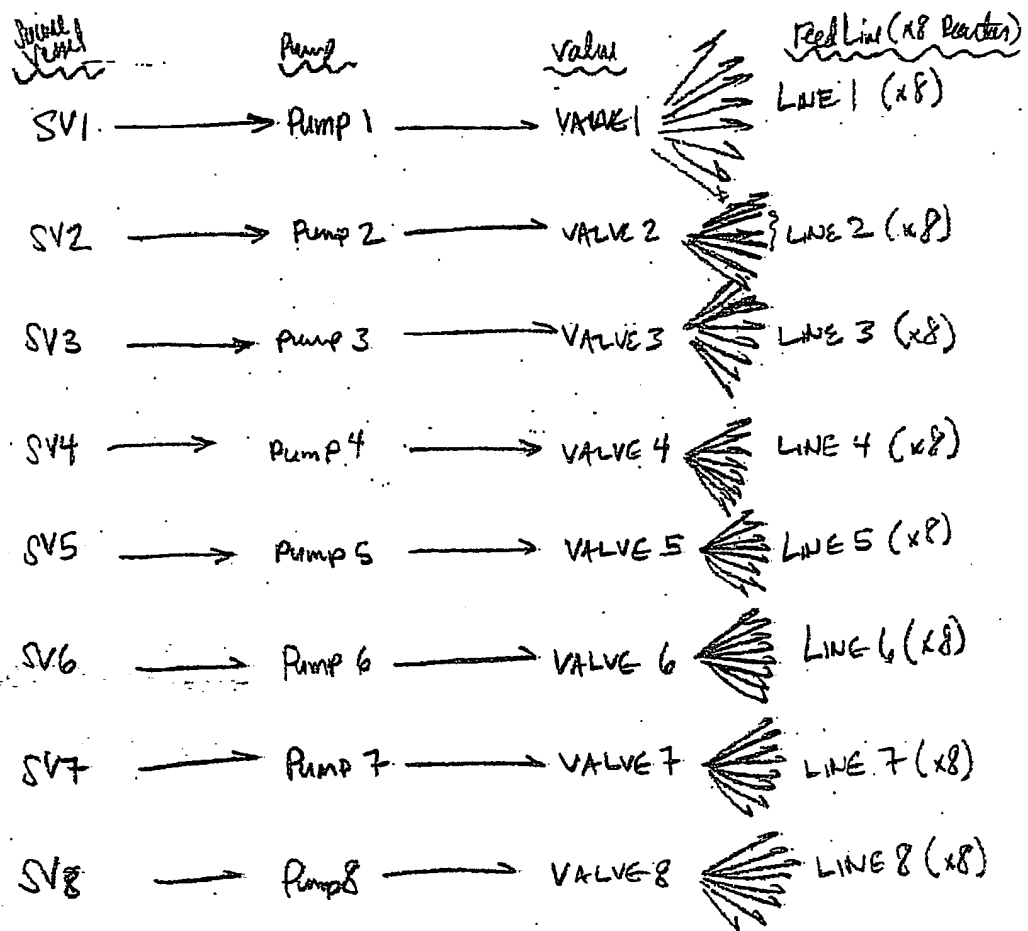 Source Vessel Pump Valve Feed Line (x8 Reactor)
SV1 Pump 1 VALVE 1 LINE 1 (x8)
SV2 Pump 2 VALVE 2 LINE 2 (x8)
SV3 Pump 3 VALVE 3 LINE 3 (x8)
SV4 Pump 4 VALVE 4 LINE 4 (x8)
SV5 Pump 5 VALVE 5 LINE 5 (x8)
SV6 Pump 6 VALVE 6 LINE 6 (x8)
SV7 Pump 7 VALVE 7 LINE 7 (x8)
SV8 Pump 8 VALVE 8 LINE 8 (x8)